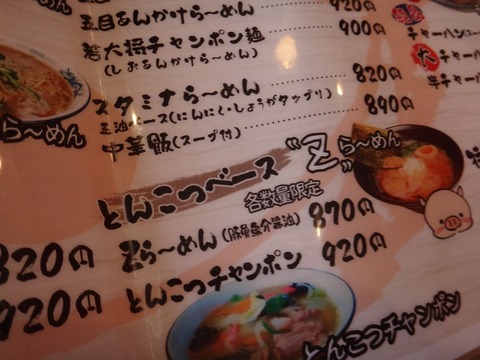 五目あんかけら～めん 920円
若大将チャンポン麺
(しおあんかけら～めん)
スタミナら～めん 820円
正油ベース(にんにく・しょうがタップリ)
中華飯(スープ付) 890円
とんこつベース
"Z"ら～めん
各数量限定
Zら～めん(豚骨魚介醤油) 870円
とんこつチャンポン 920円
820円
920円
ら～めん
チャーハン
大
半チャー
とんこつチャンポン